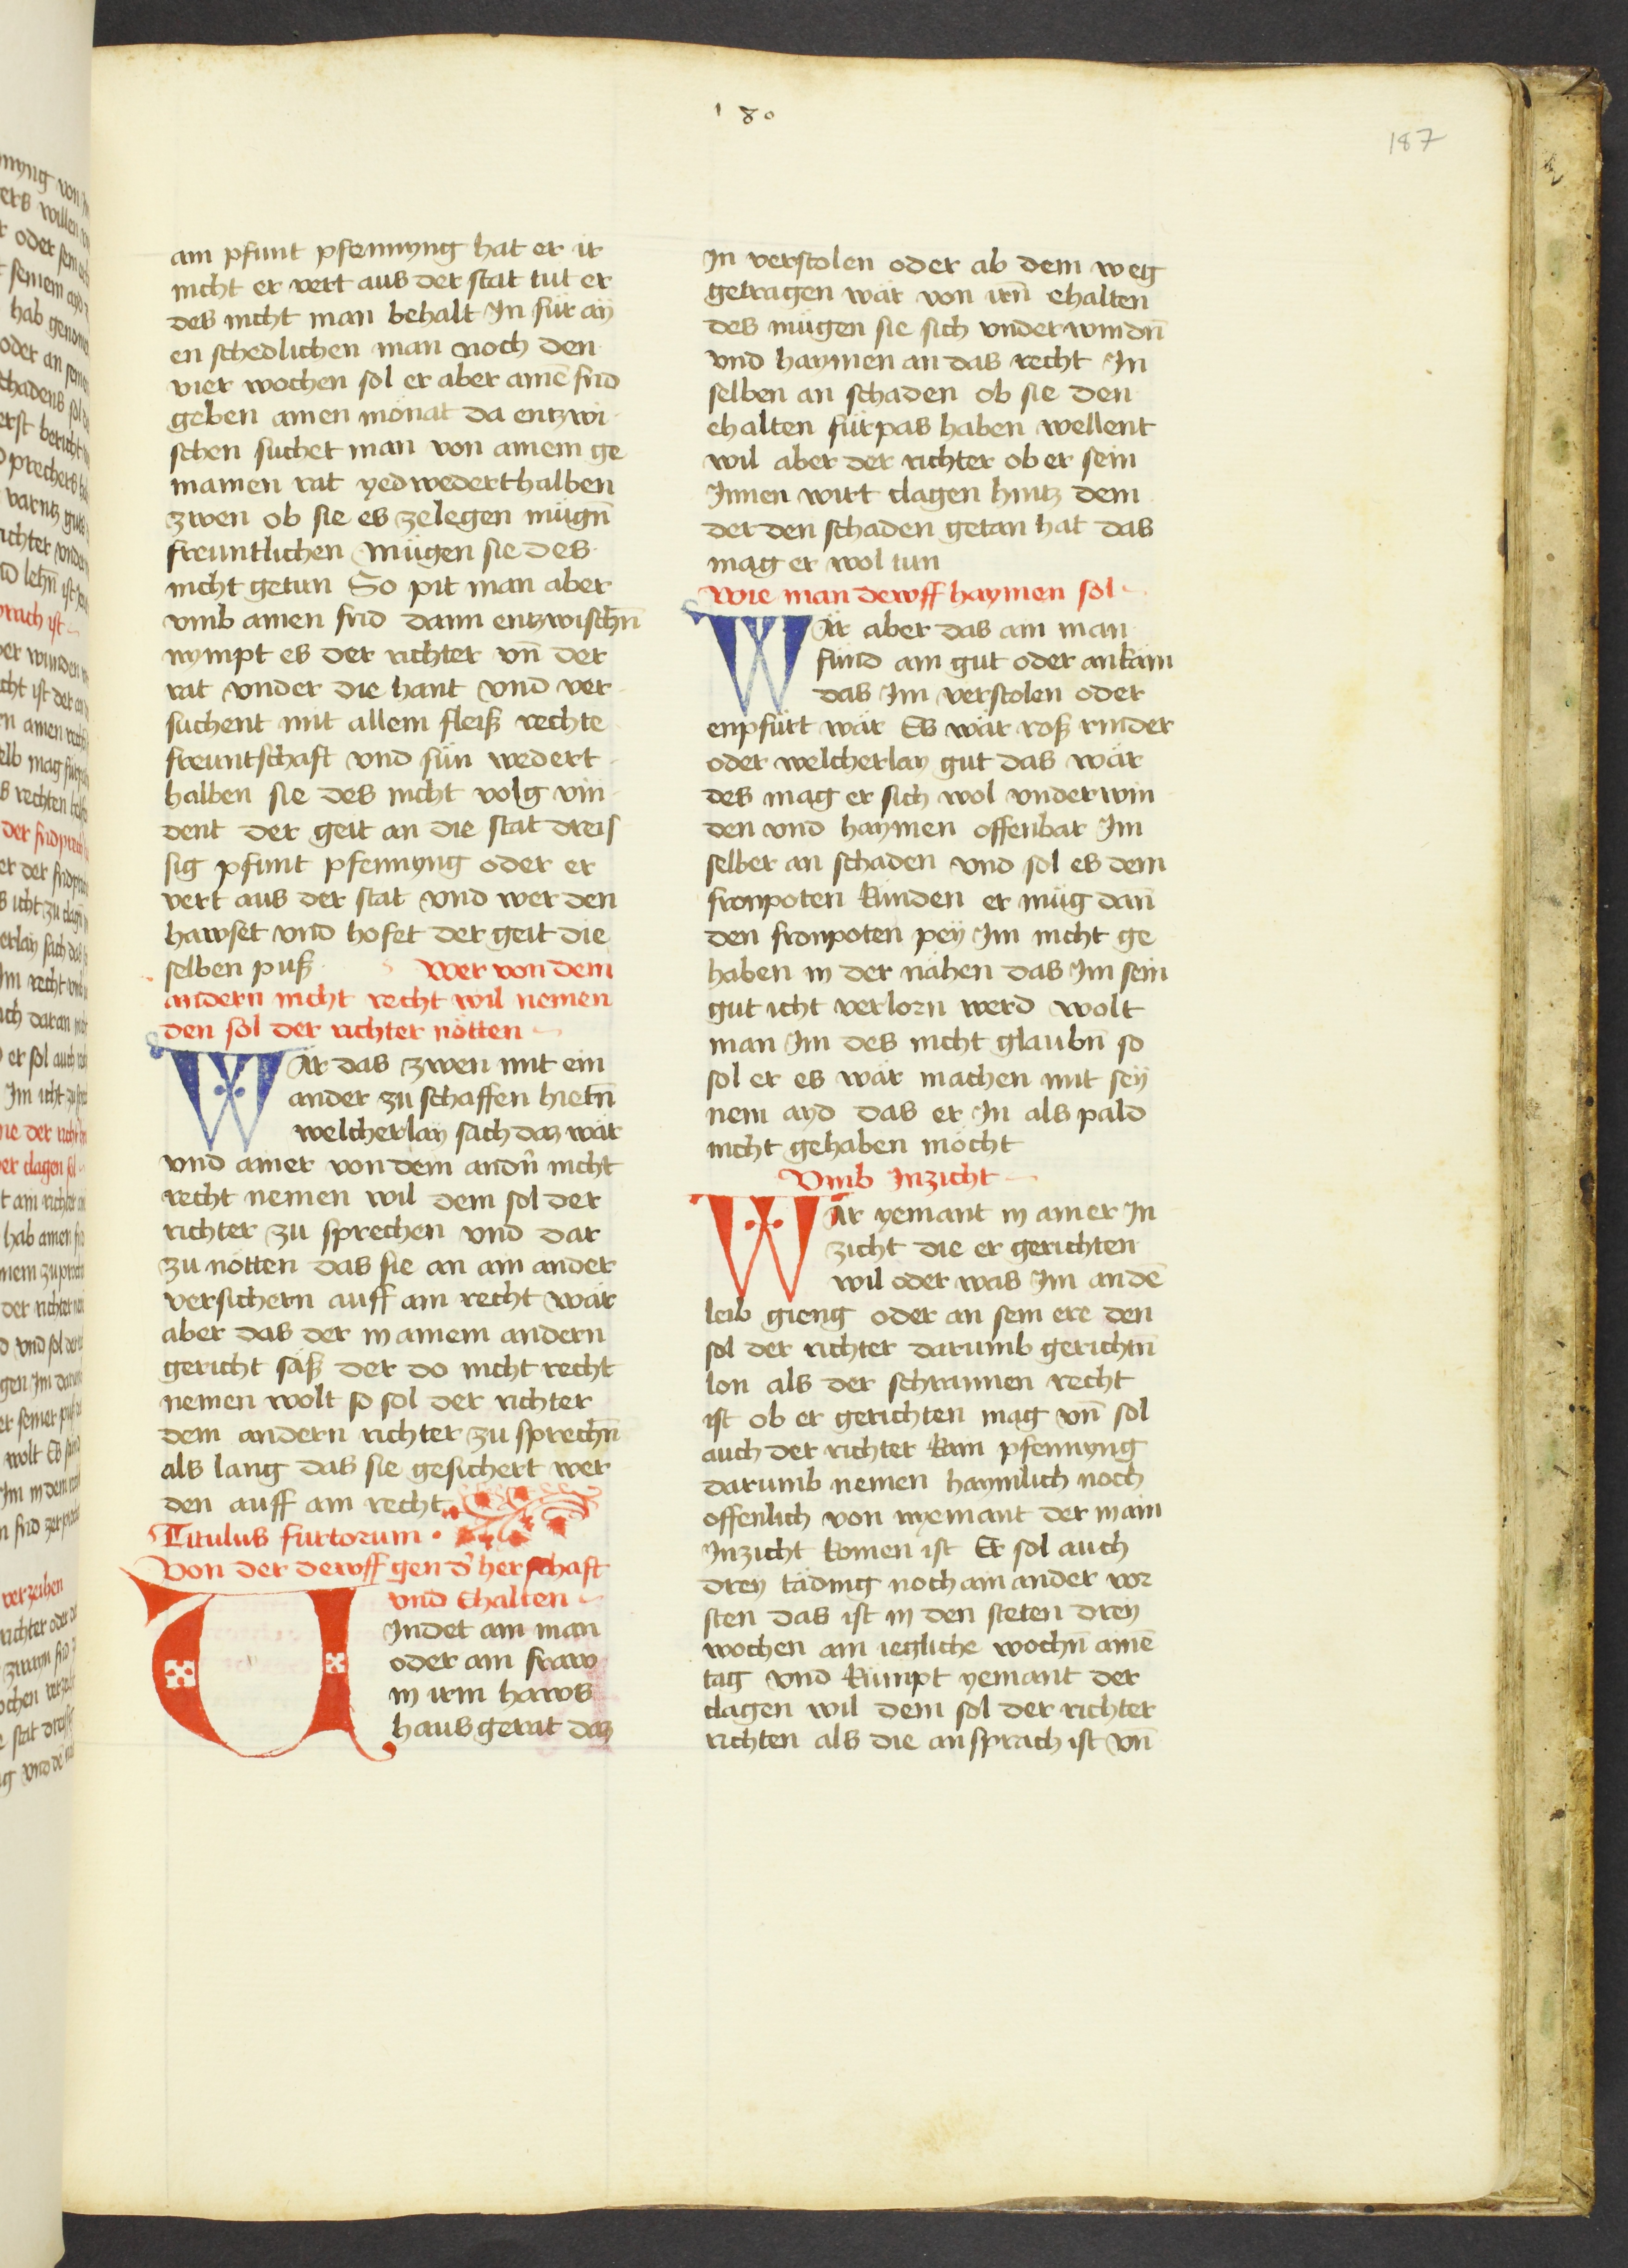 180
187
ain pfunt pfennyng hat er ir
nicht er vert aus der stat tut er
des nicht man behalt In für aÿ
en schedlichen man noch den
vier wochen sol er aber ainē frid
geben ainen mönat da entzwi
schen suchet man von ainem ge
mainen rat yedwederthalben
zwen ob sie es zelegen mügn̄
freuntlichen Mügen sie des
nicht getun So pit man aber
vmb ainen frid dann entzwischn̄
nympt es der richter vn̄ der
rat vnder die hant vnd ver
suchent mit allem fleiß rechte
freuntschaft vnd sün wedert
halben sie des nicht volg vin
dent der geit an die stat dreis
sig pfunt pfennyng oder er
vert aus der stat vnd wer den
hawset vnd hofet der geit die
selben puß Wer von dem
andern nicht recht wil nemen
den sol der richter nötten
WÄr das zwen mit ein
ander zu schaffen hietn̄
welcherlay sach daz wär
vnd ainer von dem andn̄ nicht
recht nemen wil dem sol der
richter zu sprechen vnd dar
zu nötten das sie an ain ander
versichern auff ain recht wär
aber das der in ainem andern
gericht säß der do nicht recht
nemen wolt so sol der richter
dem andern richter zu sprechn̄
als lang das sie gesichert wer
den auff ain recht
Titulus furtorum
Von der dewff gen d' herschaft
vnd Ehalten
VIndet ain man
oder ain fraw
in irm haws
hausgerät daz
In verstolen oder ab dem weg
getragen wär von irn̄ ehalten
des mügen sie sich vnderwindn̄
vnd haymen an das recht In
selben an schaden ob sie den
ehalten fürpas haben wellent
wil aber der richter ob er sein
Innen wirt clagen hintz dem
der den schaden getan hat das
mag er wol tun
Wie man dewff haymen sol
WÄr aber das ain man
fünd ain gut oder ankäm
das Im verstolen oder
enpfürt wär Es wär roß rinder
oder welcherlay gut das wär
des mag er sich wol vnderwin
den vnd haymen offenbar Im
selber an schaden vnd sol es dem
fronpoten künden er müg dan̄
den fronpoten peÿ Im nicht ge
haben in der nähen das Im sein
gut icht verlorn werd wolt
man Im des nicht glaubn̄ so
sol er es wär machen mit seÿ
nem ayd das er In als pald
nicht gehaben möcht
Vmb Inzicht
WÄr yemant in ainer In
zicht die er gerichten
wil oder was Im an dē
leib gieng oder an sein ere den
sol der richter darumb gerichtn̄
lon als der schrannen recht
ist ob er gerichten mag vn̄ sol
auch der richter kain pfennyng
darumb nemen haymlich noch
offenlich von nyemant der in ain
Inzicht komen ist Er sol auch
dreÿ täding noch ain ander vor
sten das ist in den steten dreÿ
wochen ain iegliche wochn̄ ainē
tag vnd kümpt yemant der
clagen wil dem sol der richter
richten als die ansprach ist vn̄